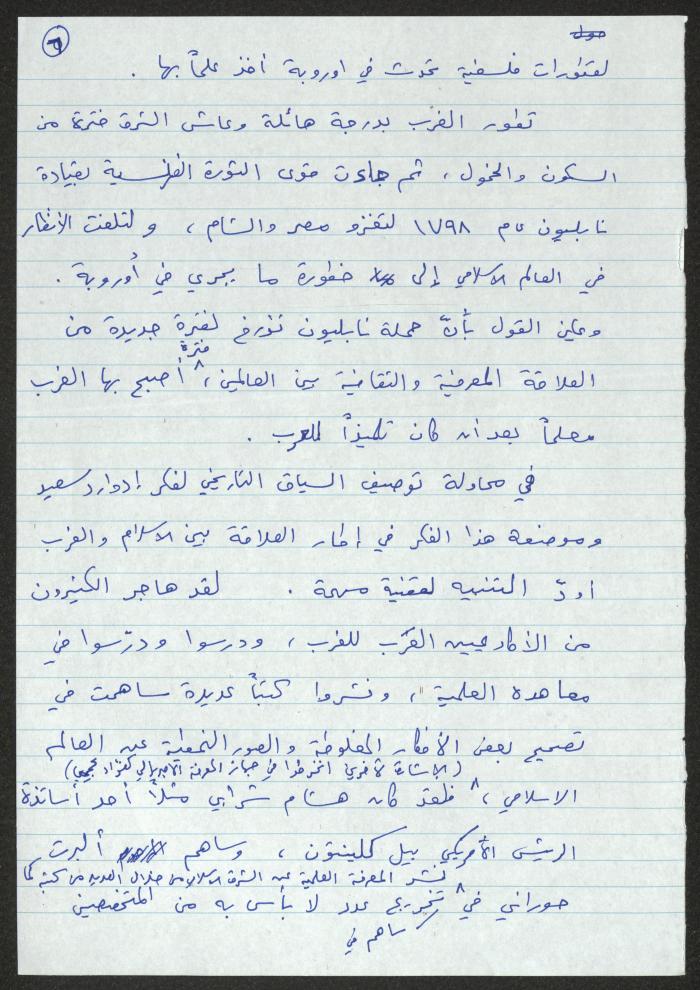 ٦
حول
لتطورات فلسفية تحدث في اوروبة أخذ علماً بها .
تطور الغرب بدرجة هائلة وعاش الشرق فترة من
السكون والخمول ، ثم جاءت قوى الثورة الفرنسية بقيادة
نابليون عام ١٧٩٨ لتغزو مصر والشام ، ولتلفت الأنظار
في العالم الاسلامي إلى خطورة ما يجري في أوروبة .
ويمكن القول بأنّ حملة نابليون تؤرخ لفترة جديدة من
فترة
العلاقة المعرفية والثقافية بين العالمين ، أصبح بها الغرب
معلماً بعد ان كان تلميذاً للعرب .
في محاولة توصيف السياق التاريخي لفكر إدوارد سعيد
وموضعة هذا الفكر في إطار العلاقة بين الاسلام والغرب
اودّ التنبيه لقضية مهمة . لقد هاجر الكثيرون
من الأكاديميين العرب للغرب ، ودرسوا ودرّسوا في
معاهده العلمية ، ونشروا كتباً عديدة ساهمت في
تصحيح بعض الأفكار المغلوطة والصور النمطية عن العالم
(الإشارة لآخرين انخرطوا في جهاز المعرفة الامبريالي كفؤاد عجمي)
الاسلامي ، فلقد كان هشام شرابي مثلاً أحد أساتذة
الرئيس الأمريكي بيل كلينتون ، وساهم ألبرت
نشر المعرفة العلمية عن الشرق الاسلامي من خلال العديد من كتبه كما
حوراني في تخريج عدد لا بأس به من المتخصصين
ساهم في